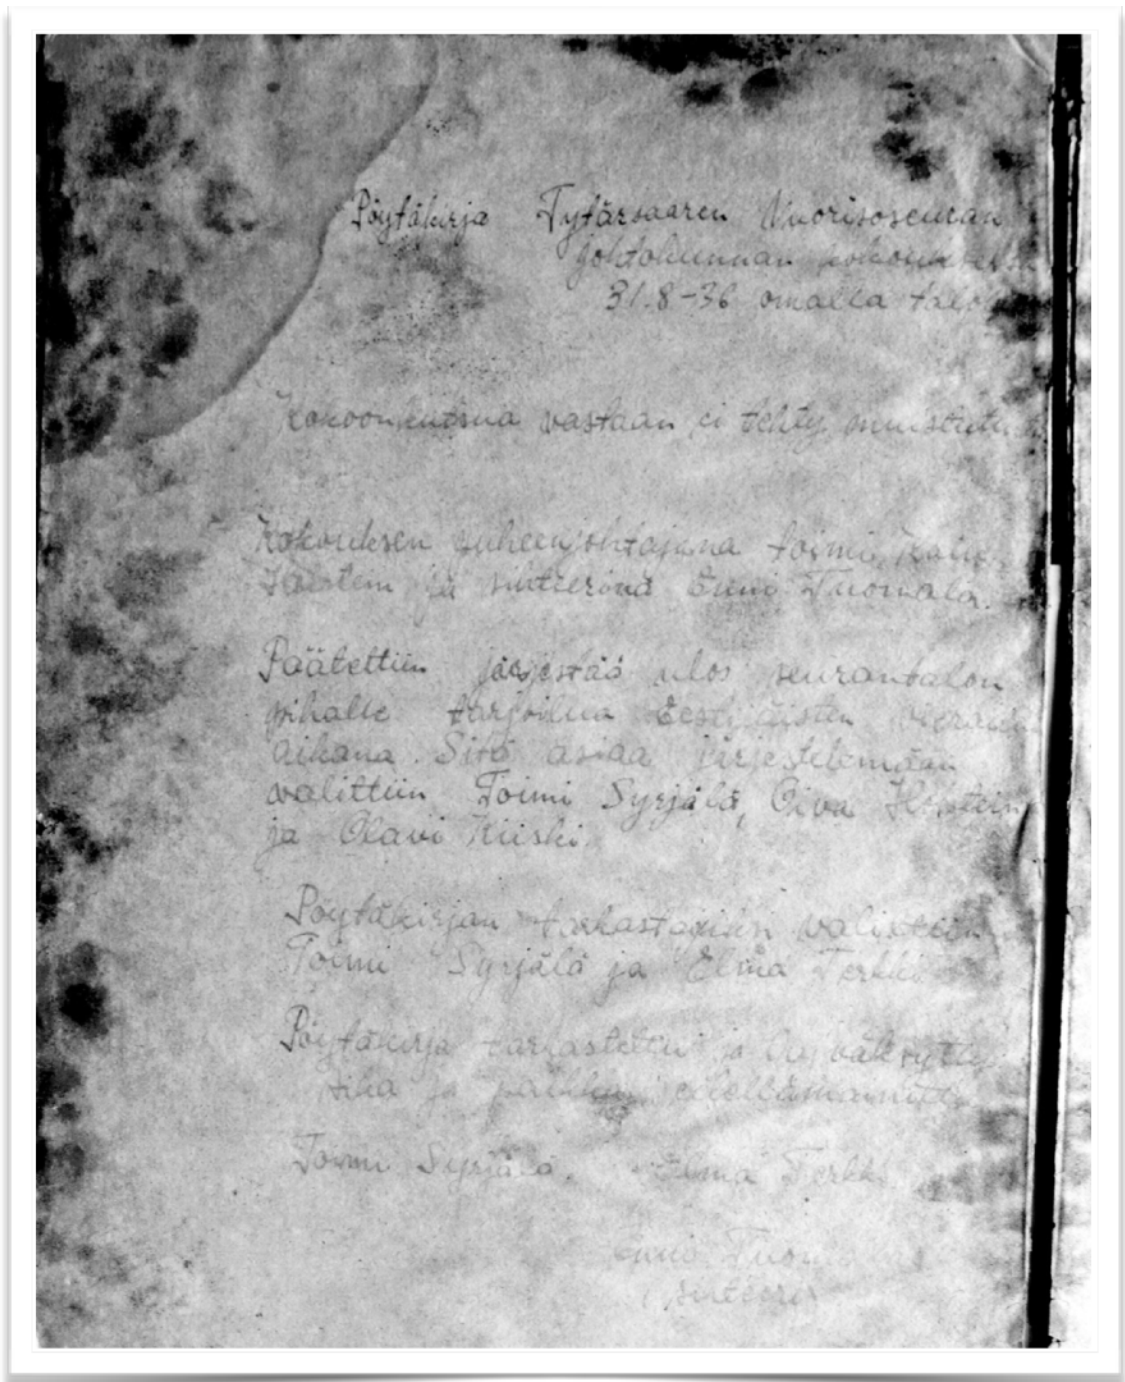 Pöytäkirja Tytärsaaren Nuorisoseuran
johtokunnan
31.8-36 omalla
Kokoonkutsua vastaan ei tehty
Kokouksen puheenjohtajana toimi
ja sihteerinä Enni Tuomala.
Päätettiin järjestää ulos seurantalon
pihalle tarjoilua Eestiläisten
aikana. Sitä asiaa järjestelemään
valittiin Toimi Syrjälä, Oiva
ja Olavi Kiiski.
Pöytäkirjan tarkastajiksi valittiin
Toimi Syrjälä ja Elma Terkki
Pöytäkirja tarkastettu ja hyväksytty
aika ja paikka
Toimi Syrjälä. Elma Terkki
Enni Tuomala
sihteeri